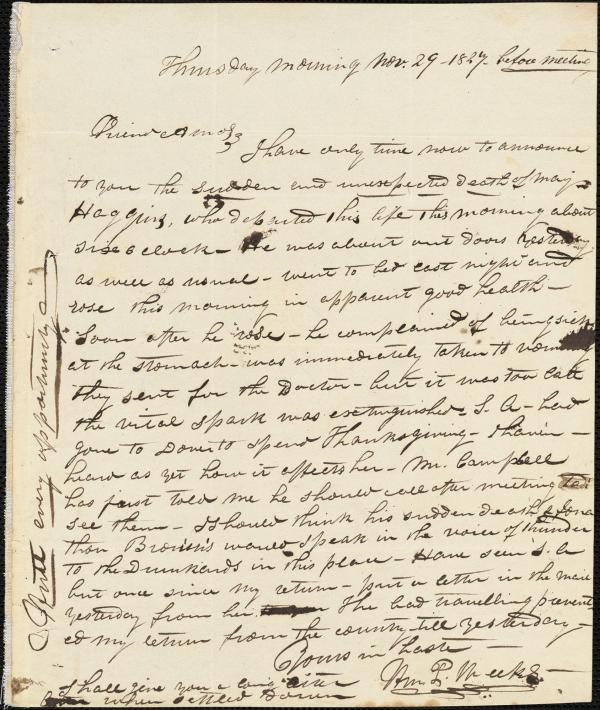 Thursday morning Nov. 29 - 1827 - before meeting
Friend Amos
I have only time now to announce
to you the sudden and unexpected death of Maj-
Haggins, who departed this life this morning about
six o clock - He was about out doors yesterday
as well as usual - went to bed last night and
rose this morning in apparent good health -
Soon after he rose - he complained of being sick
at the stomach - was immediately taken to vomiting
they sent for the Doctor - but it was too late
the vital spark was extinguished - S. A - had
gone to Dover to spend Thanksgiving - I haven -
heard as yet how it affects her - Mr. Campbell
has just told me he should call after meeting
see them - I should think his sudden death
than Brown's would speak in the voice of thunder
to the Drunkards in this place - Have seen S. A
but once since my return - put a letter in the mail
yesterday from her The bad travelling prevent
ed my return from the country till yesterday -
Yours in haste -
Wm. P. Weeks -
I shall give you a long letter
when settled down
Write every opportunity